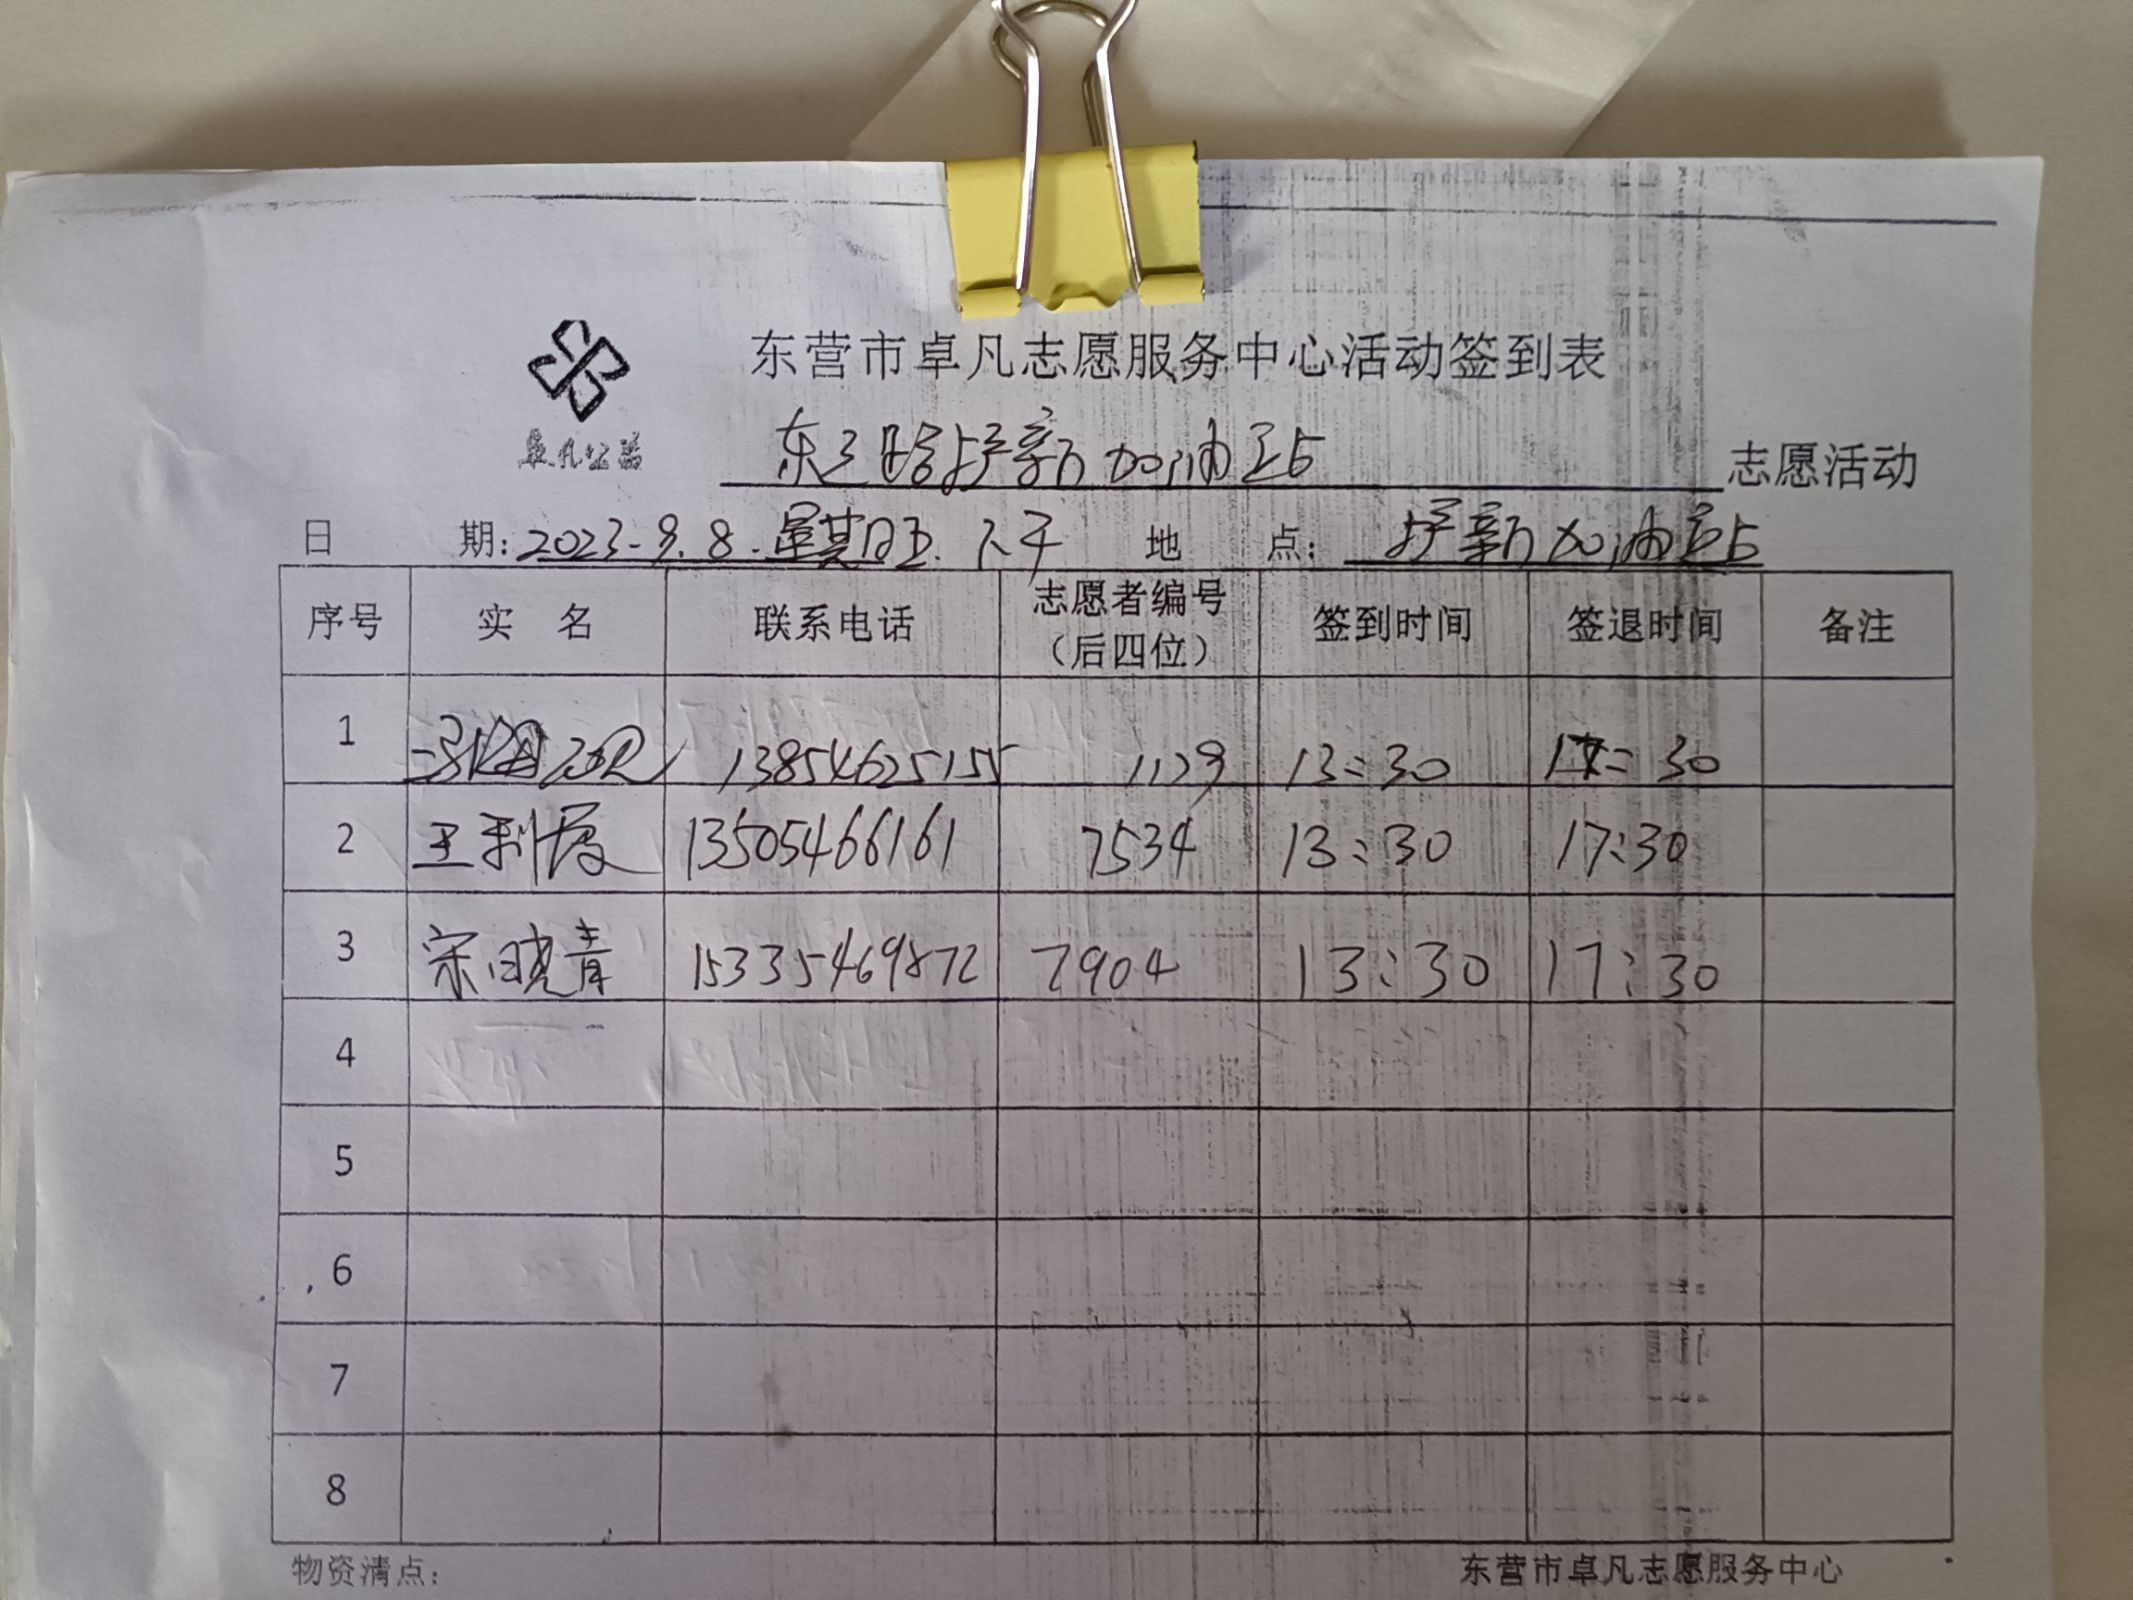 东营市卓凡志愿服务中心活动签到表
卓凡公益
东三路护新加油站 志愿活动
日 期: 2023-9.8.星期五.下午 地 点: 护新加油站
序号 实 名 联系电话 志愿者编号（后四位） 签到时间 签退时间 备注
1 13854625155 1129 13:30 17:30
2 王利霞 13505466161 7534 13:30 17:30
3 宋晓青 15335469872 7904 13:30 17:30
4
5
6
7
8
物资清点: 东营市卓凡志愿服务中心